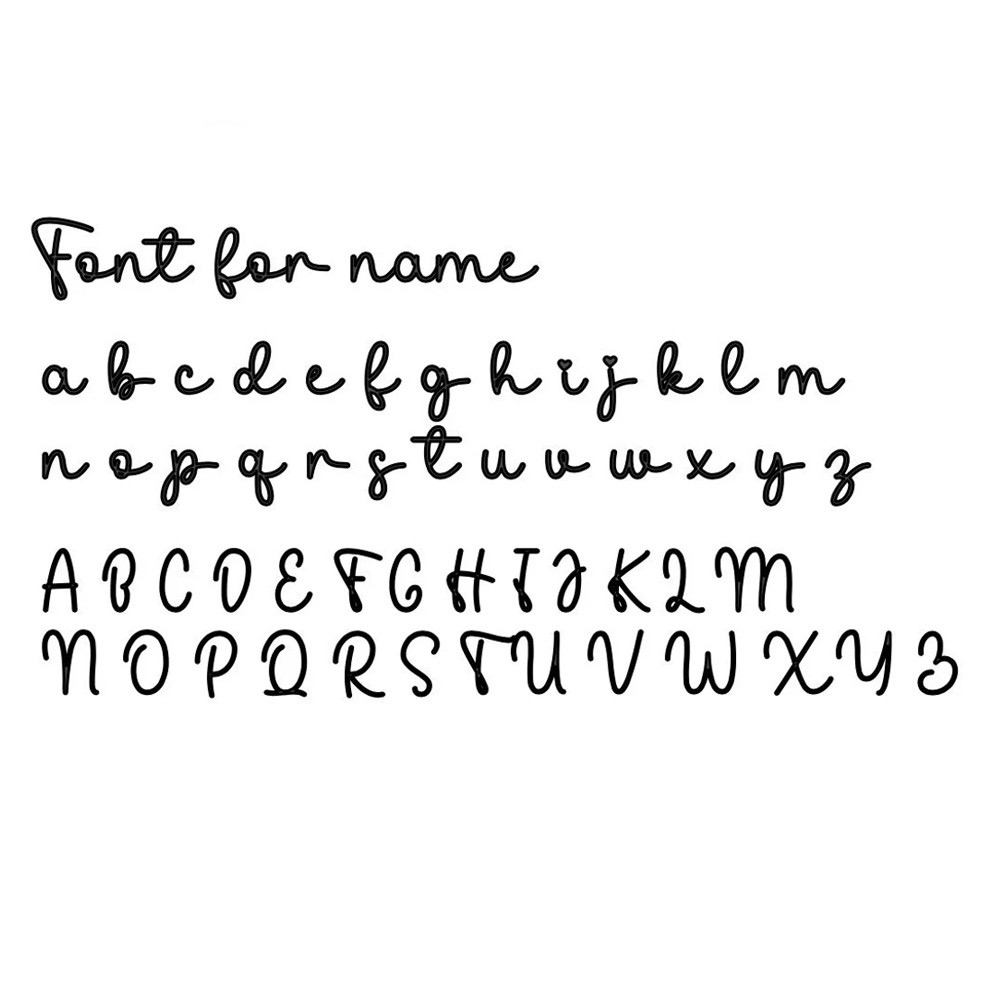 Font for name
a b c d e f g h i j k l m
n o p q r s t u v w x y z
A B C D E F G H I J K L M
N O P Q R S T U V W X Y Z